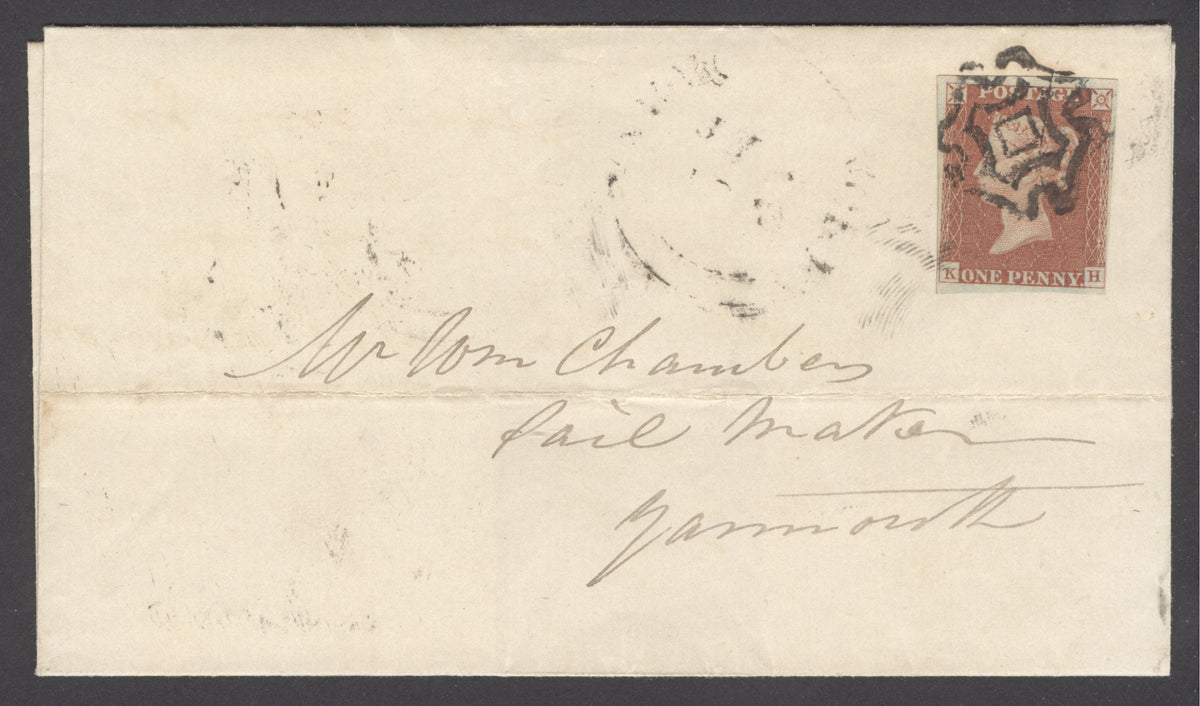 POSTAGE
K ONE PENNY. H
Mr Wm Chambers
Sail Maker
Yarmouth